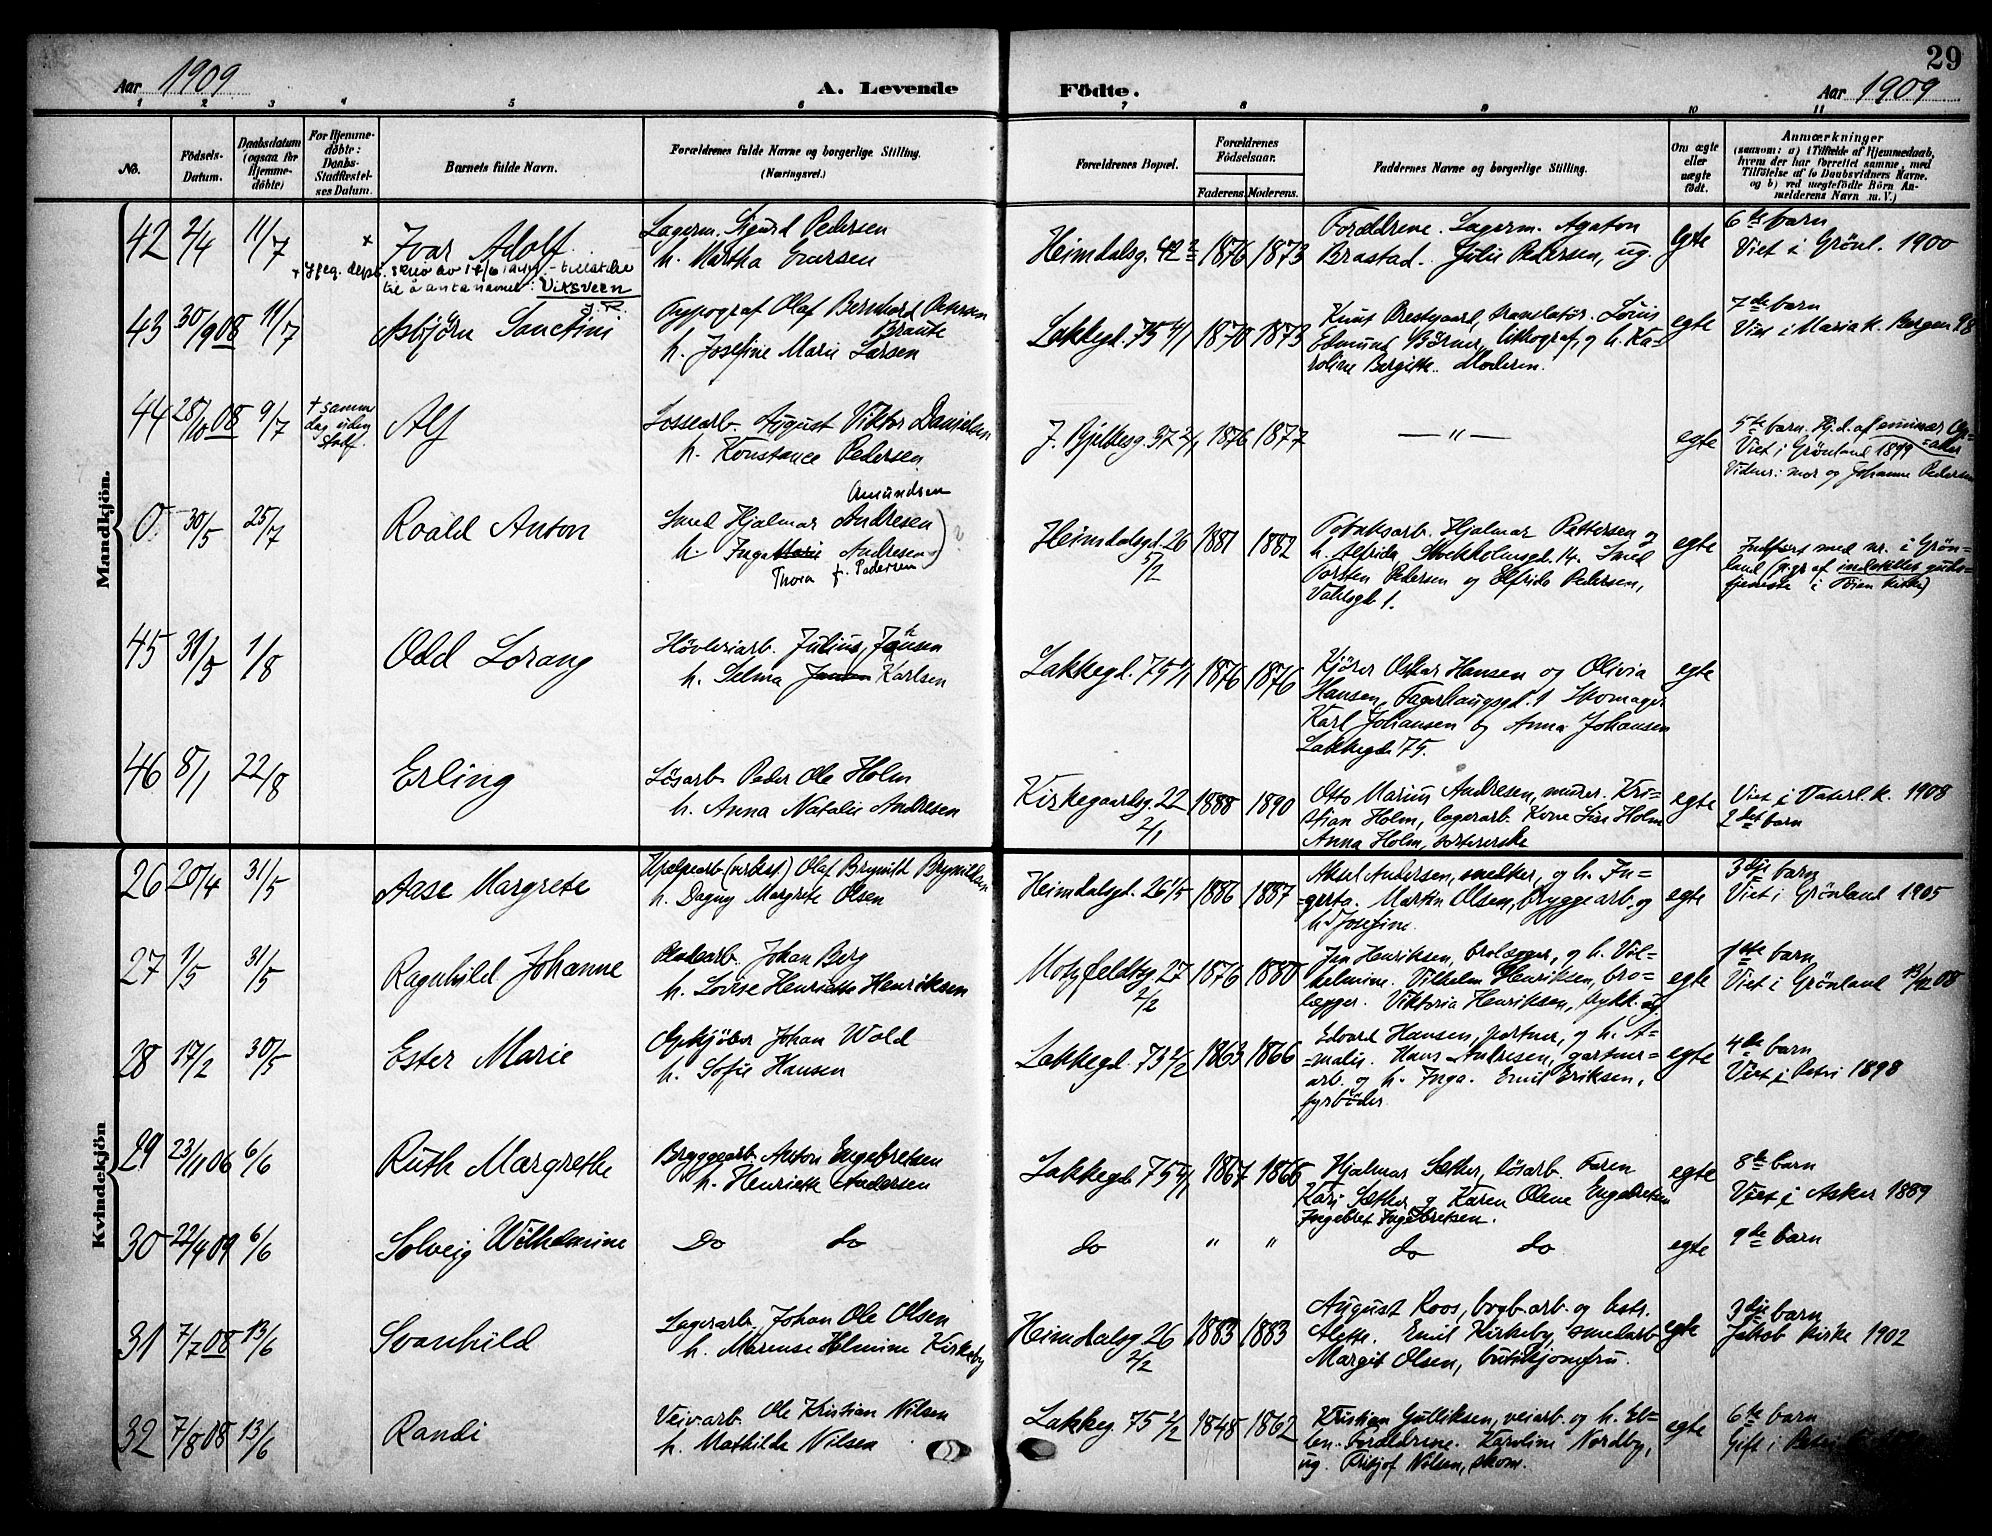 29
Aar 1909
A. Levende
Födte.
Aar 1909
1 2 3 4 5 6 7 8 9 10 11
No.
Födsels-Datum.
Daabsdatum (ogsaa for Hjemme-döbte)
For Hjemme-döbte: Daabs-Stadfæstel-ses Datum.
Barnets fulde Navn.
Forældrenes fulde Navne og borgerlige Stilling.
(Næringsvei.)
Forældrenes Bopæl.
Forældrenes Födselsaar.
Faderens. Moderens.
Faddernes Navne og borgerlige Stilling.
Om ægte eller uægte födt.
Anmærkninger
(saasom: a) i Tilfælde af Hjemmedaab,
hvem der har forrettet samme, med
Tilföielse af to Daabsvidners Navne.
og b) ved uægtefödte Börn An-
melderens Navn m. V.)
Mandkjön.
42 2/4 11/7 x Ivar Adolf
Lagerm. Sigurd Pedersen
h. Martha Evensen
Heimdalsg. 42 1876 1873
Foreldrene. Lagerm. Agaton
Brastad. Julie Pedersen, ug.
egte
6te barn
Viet i Grönl. 1900
til å anta navnet: Viksveen
43 30/9 08 11/7 Asbjörn Sanctini
Typograf Olaf Bernhard Petersen
Braute
h. Josefine Marie Larsen
Lakkegd. 75 4/1 1870 1873
Knut Prestgaard, translatör. Louis
Edmund Börner, lithograf, og h. Ka-
roline Bergitte. Moderen.
egte
7de barn
Viet i Mariak. Bergen 98
44 28/10 08 9/7 + samme dag uden stadf. Alf
Lossearb. August Viktor Danielsen
h. Konstance Pedersen
J. Bjelkesg. 37 2/1 1876 1877
— " —
egte
5te barn. Hj.d. af
Viet i Grönland 1899
Vidner: mor og Johanne Pedersen
0 30/5 25/7 Roald Anton
Amundsen
Smed Hjalmar Andresen
h. Inga Marie Andresen
Thora f. Pedersen
Heimdalsgd. 26 5/2 1881 1882
Tobaksarb. Hjalmar Pettersen og
h. Alfrida Stockholmsgd. 14. Smed
Torsten Pedersen og Elfrida Pedersen,
Vahlsgd 1.
egte
Indført med nr. i Grön-
land (p.gr af indstillet guds-
tjeneste i Töien kirke)
45 31/5 1/8 Odd Lorang
Høvleriarb. Julius Jansen
h. Selma Jansen Karlsen
Lakkegd. 75 4/1 1876 1876
Kjörer Oskar Hansen og Olivia
Hansen, Fagerhaugsgd. 1 Skomager
Karl Johansen og Anna Johansen
Lakkegd. 75.
egte
46 8/1 22/8 Erling
Lösarb. Peder Ole Holm
h. Anna Natalie Andresen
Kirkegaardsg. 22 2/1 1888 1890
Otto Marius Andresen, murer. Kri-
stian Holm, lagerarb. Kone Lise Holm
Anna Holm, sortererske
egte
Viet i Vaterl. k. 1908
2det barn
Kvindekjön
26 20/4 31/5 Aase Margrete
Hjælpearb. Olaf Brynild Brynildsen
h. Dagny Margrete Olsen
Heimdalsgd. 26 1/5 1886 1887
Aksel Andersen, snekker, og h. In-
gerta. Martin Olsen, bryggearb. og
h. Josefine.
egte
3dje barn
Viet i Grönland 1905
27 1/5 31/5 Ragnhild Johanne
Johan Berg
h. Lovise Henriette Henriksen
Motzfeldtsg. 27 2/2 1876 1880
Jen Henriksen, brolægger, og h. Vil-
helmine. Vilhelm Henriksen, bro-
lægger. Viktoria Henriksen, sykk. ug.
egte
1ste barn
Viet i Grönland 19/12 08
28 17/2 30/5 Ester Marie
Opkjöber Johan Wold
h. Sofie Hansen
Lakkegd. 73 2/2 1863 1866
Edvard Hansen, portner, og h. A-
malie. Hans Andresen, gartner-
arb. og h. Inga. Emil Eriksen,
fyrböder.
egte
4de barn
Viet i Petri 1898
29 23/11 06 6/6 Ruth Margrethe
Bryggearb. Anton Engebretsen
h. Henriette Andersen
Lakkegd. 75 4/1 1867 1866
Hjalmar Sæther, lösarb. Faren
Kari Sæther og Karen Olene Engebretsen
Ingebret Ingebretsen.
egte
8de barn
Viet i Asker 1889
30 22/4 09 6/6 Solveig Wilhelmine
Do do
do " "
do do
egte
9de barn
31 7/7 08 13/6 Svanhild
Lagerarb. Johan Ole Olsen
h. Marense Helmine Kirkeby
Heimdalsg. 26 2/2 1883 1883
August Roos, bogb.arb. og hstr.
Alette. Emil Kirkeby, smedarb
Margit Olsen, butikjomfru.
egte
3dje barn
Jakob kirke 1902
32 7/8 08 13/6 Randi
Veivarb. Ole Kristian Nilsen
h. Mathilde Nilsen
Lakkeg. 75 2/2 1848 1862
Kristian Gulliksen, veiarb. og h. El-
len. Foreldrene. Karoline Nordby,
ug. Fritjof Nilsen, skom.
egte
6te barn
Gift i Petri